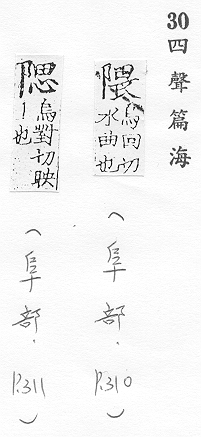 30 四聲篇海
隈 烏回切
水曲也
（阜部．P.310）
烏對切映
丨也
（阜部．P.311）